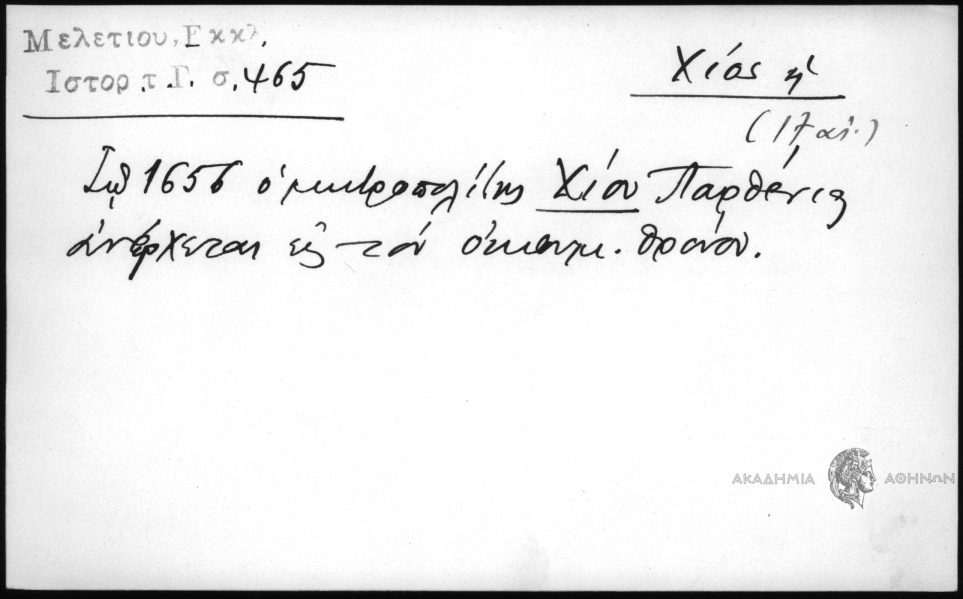 Μελετιου, Εκκλ.
Ιστορ. τ. Γ. σ. 465
Χίος ἡ
(17 αἰ.)
Τῷ 1656 ὁ μητροπολίτης Χίου Παρθένιος
ἀνέρχεται εἰς τὸν οἰκουμ. θρόνον.
ΑΚΑΔΗΜΙΑ ΑΘΗΝΩΝ